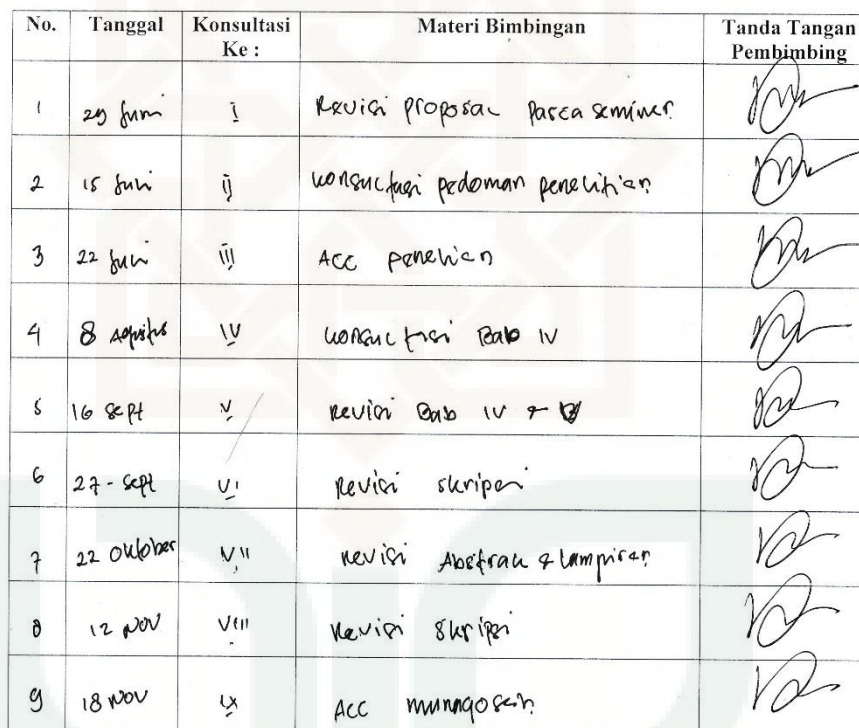 No. Tanggal Konsultasi Ke : Materi Bimbingan Tanda Tangan Pembimbing
1 29 Juni I Revisi proposal Pasca seminar
2 15 Juli II konsultasi pedoman penelitian
3 22 Juli III Acc penelitian
4 8 Agustus IV konsultasi Bab IV
5 16 Sept V Revisi Bab IV & V
6 27 - Sept VI Revisi skripsi
7 22 Oktober VII Revisi Abstrak & lampiran
8 12 Nov VIII Revisi Skripsi
9 18 Nov IX Acc munaqosah